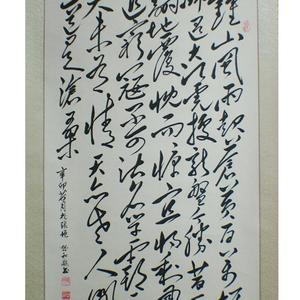 鍾山風雨起蒼黃百万雄
師過大江虎踞龍盤今勝昔天
翻地覆慨而慷宜將剩勇
追窮寇不可沽名學霸王
天若有情天亦老人間
正道是滄桑
辛卯 月於張垣 書